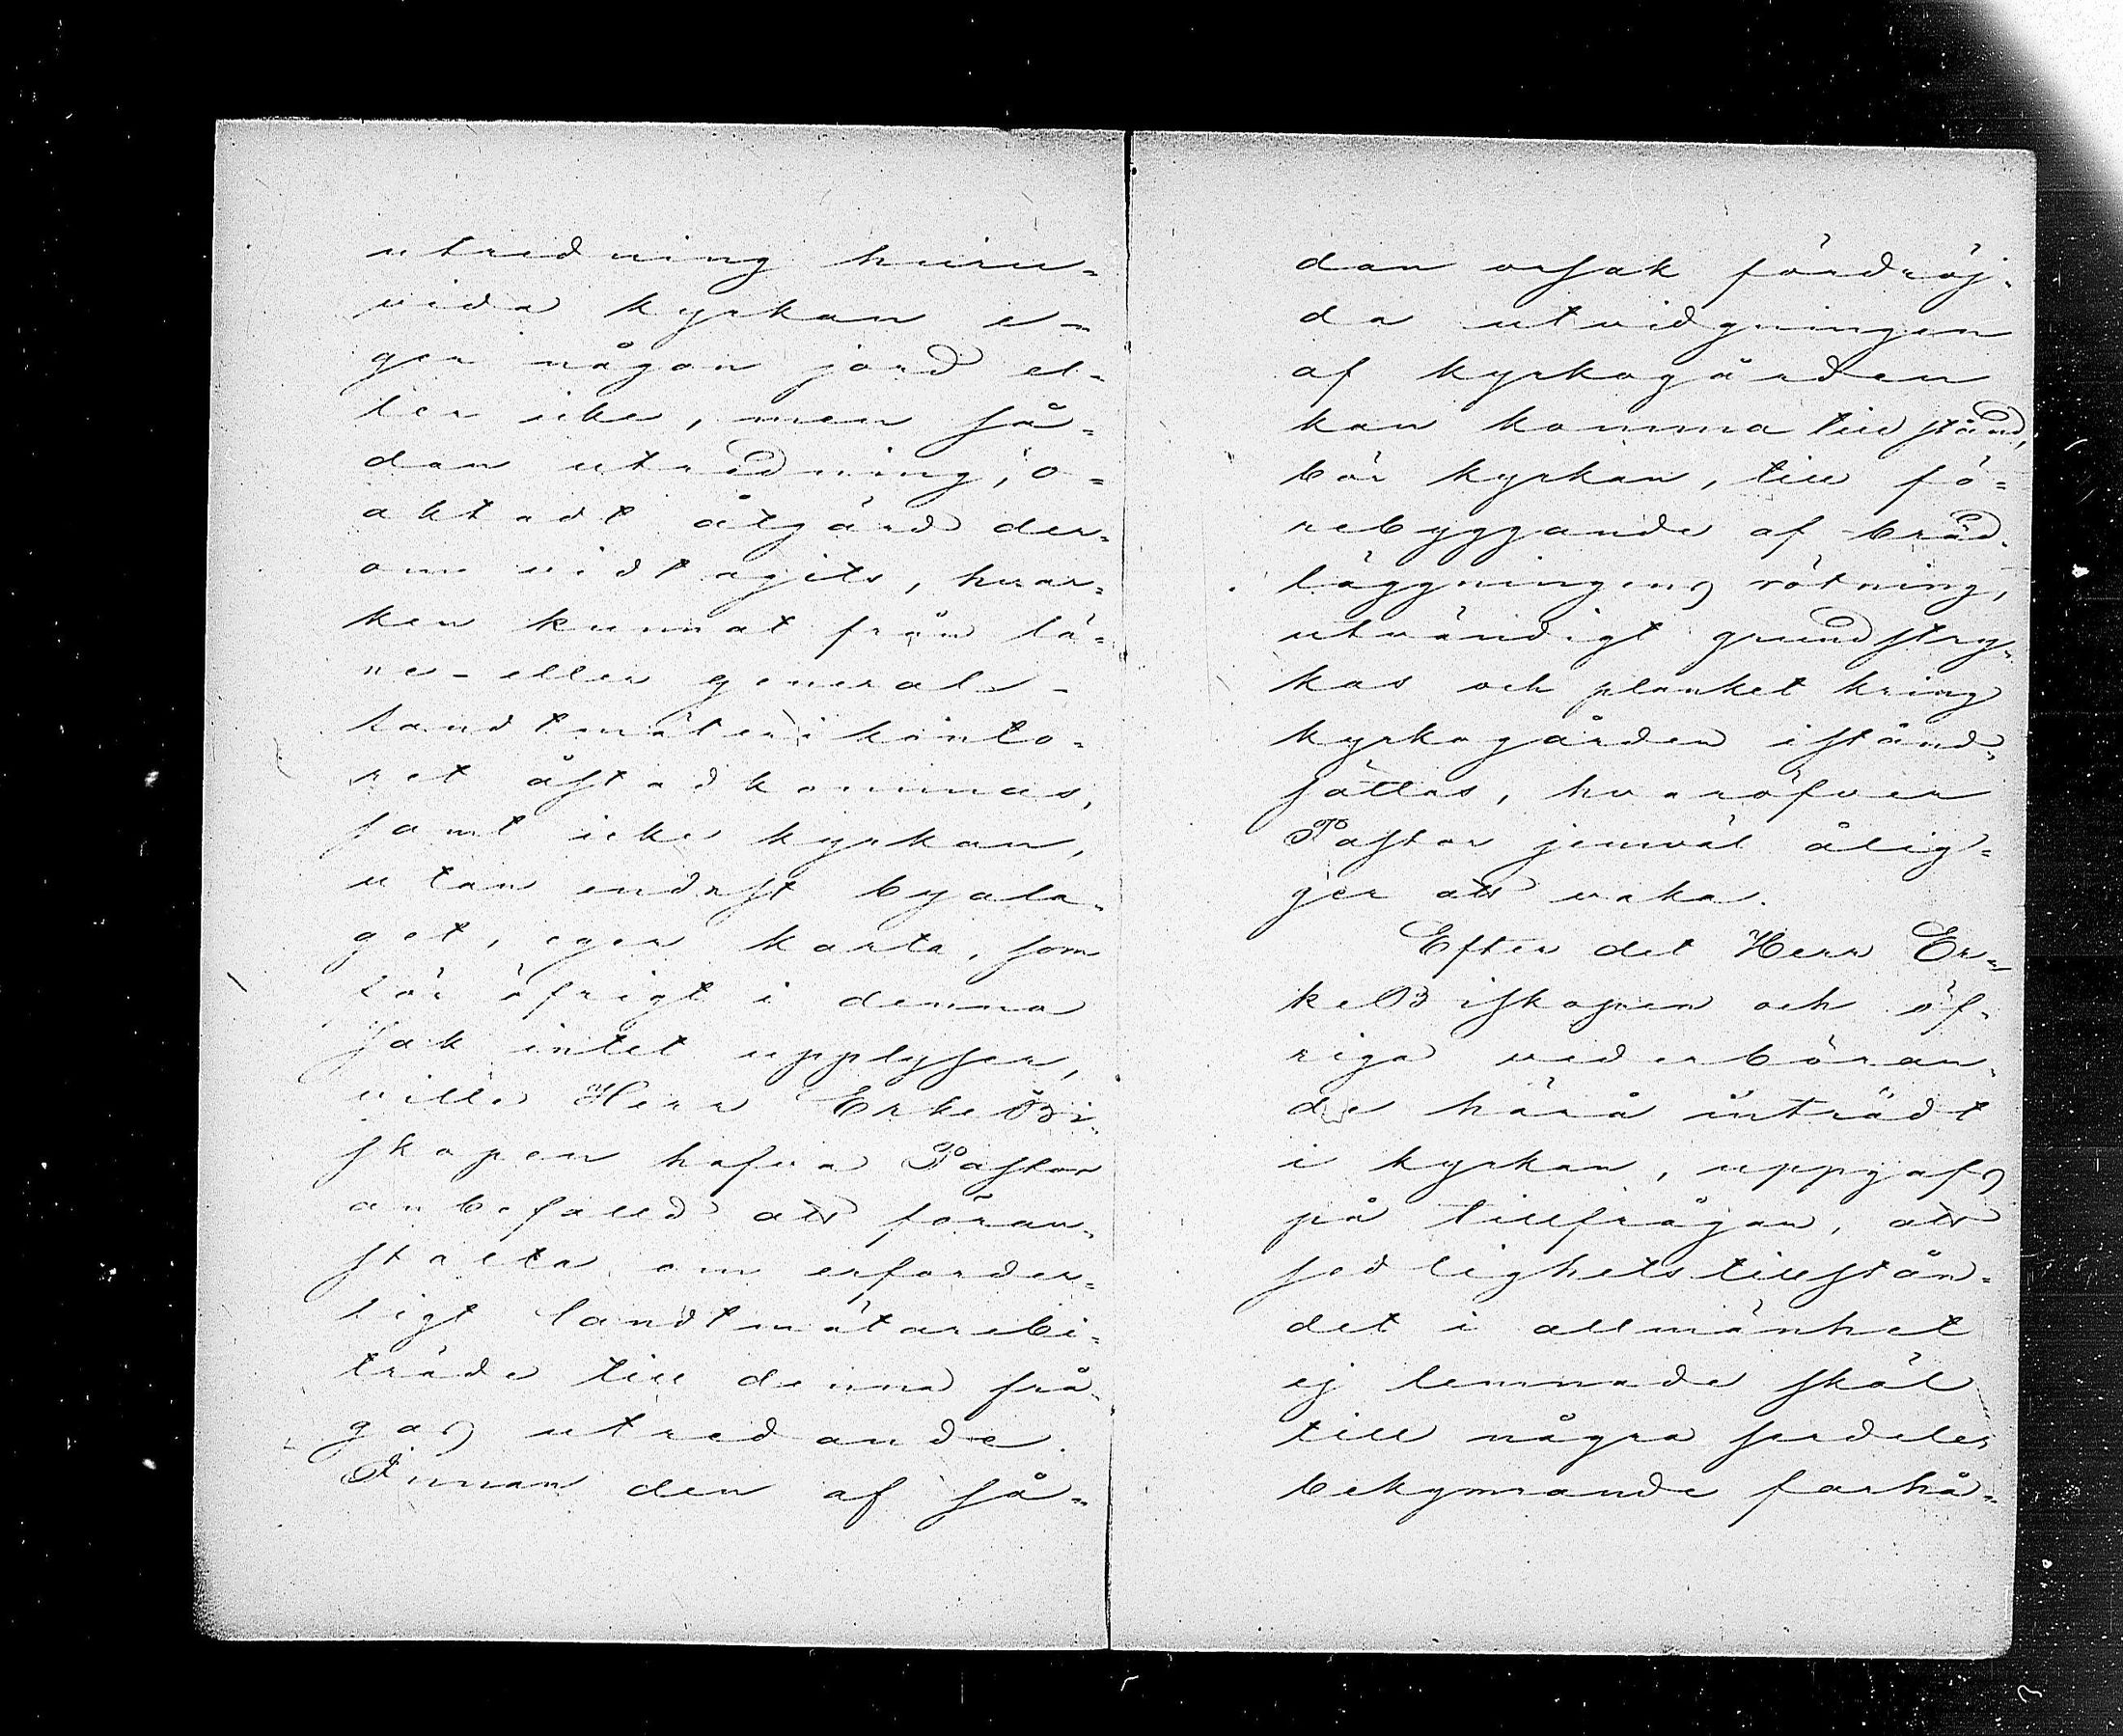 utredning huru-
vida kyrkan e-
ger någon jord el-
ler icke, men så-
dan utredning, o-
aktadt åtgärd der-
om vidtagits, hvar-
ken kunnat från lä-
ne- eller general-
landtmäterikonto-
ret åstadkommas,
samt icke kyrkan,
utan endast byala-
get, eger karta, som
för öfrigt i denna
sak intet upplyser,
ville Herr ErkeBi-
skopen hafva Pastor
anbefalld att föran-
stalta om erforder-
ligt landtmätarebi-
träde till denna frå-
gas utredande.
Innan den af så-
dan orsak fördröj-
da utvidgningen
af kyrkogården
kan komma till stånd,
bör kyrkan, till fö-
rebyggande af bräd-
läggningens rötning,
utvändigt grundstry-
kas och planket kring
kyrkogården istånd-
sättas, hvaröfver
Pastor jemväl ålig-
ger att vaka.
Efter det Herr Er-
keBiskopen och öf-
riga vederböran-
de härå inträdt
i kyrkan, uppgafs
på tillfrågan, att
sedlighetstillstån-
det i allmänhet
ej lemnade skäl
till några serdeles
bekymrande farhå-